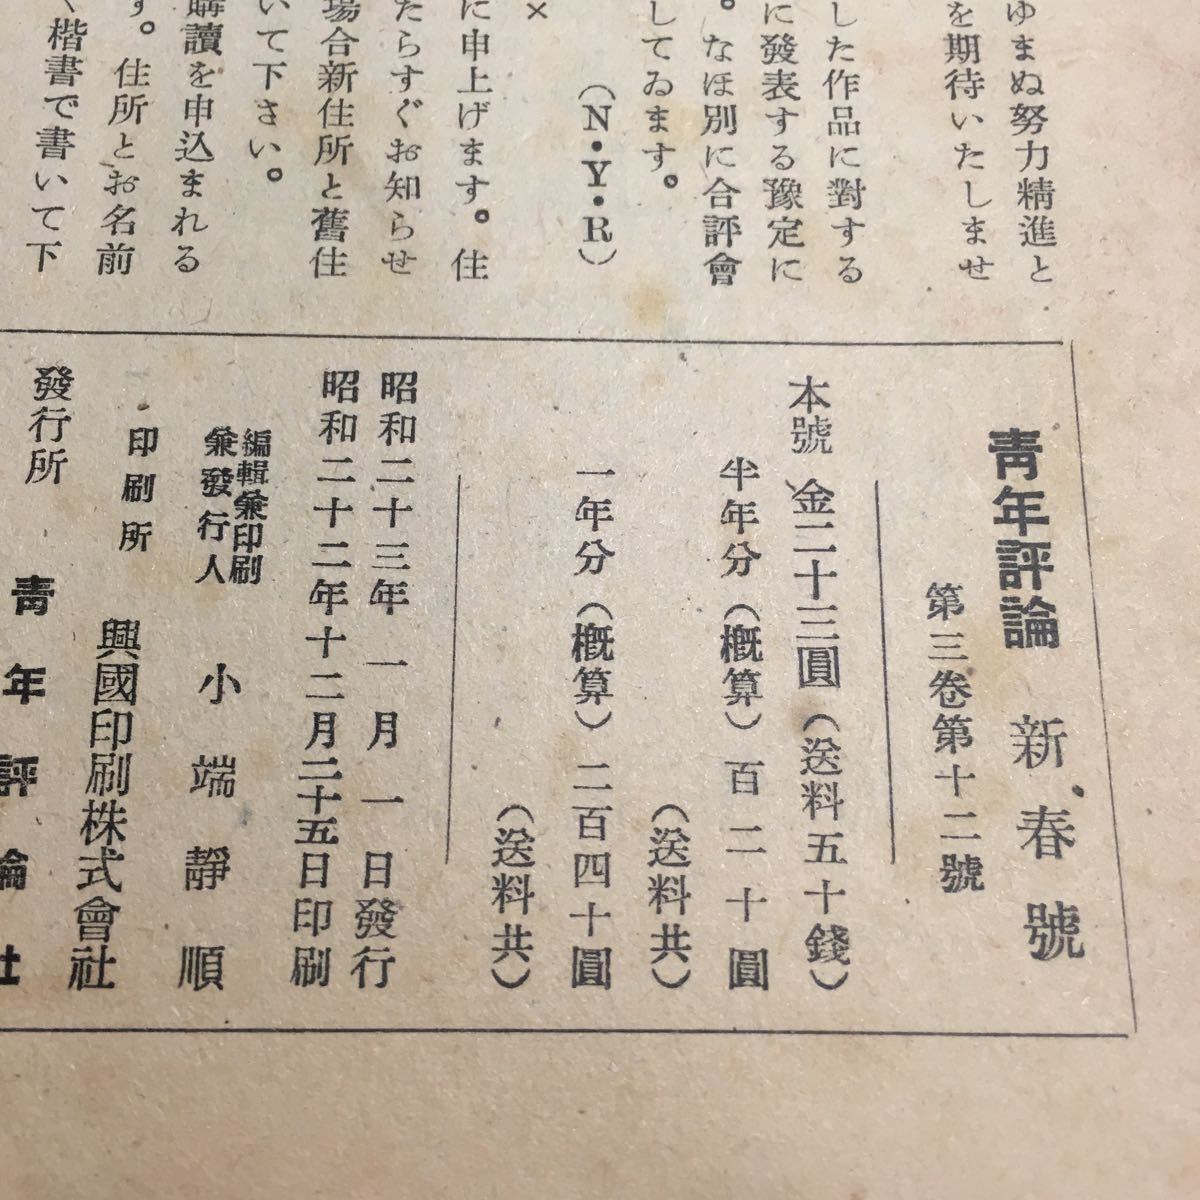 ゆまぬ努力精進と
を期待いたしませ
した作品に對する
に發表する豫定に
。なほ別に合評會
してゐます。
（N・Y・R）
×
に申上げます。住
たらすぐお知らせ
場合新住所と舊住
いて下さい。
購讀を申込まれる
す。住所とお名前
く楷書で書いて下
靑年評論 新春號
第三卷第十二號
本號 金二十三圓（送料五十錢）
半年分（槪算）百二十圓
（送料共）
一年分（槪算）二百四十圓
（送料共）
昭和二十三年 一月 一日發行
昭和二十二年十二月二十五日印刷
編輯兼印刷
兼發行人 小端靜順
印刷所 興國印刷株式會社
發行所 靑年評論社